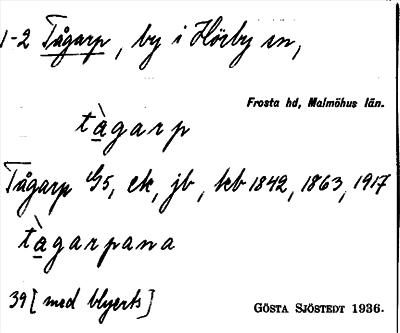 1-2 Tågarp, by i Hörby sn,
Frosta hd, Malmöhus län.
tàgarp
Tågarp GS, ek, jb, kb 1842, 1863, 1917
tàgarpana
39 [med blyerts]
GÖSTA SJÖSTEDT 1936.